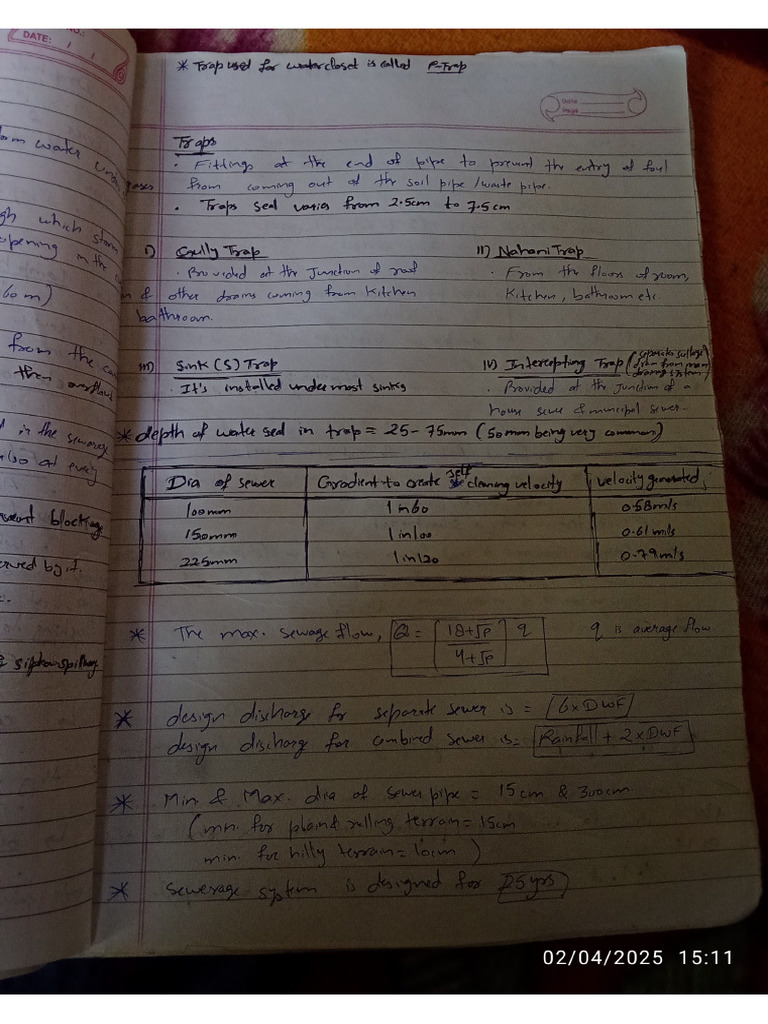 DATE: / /
* Trap used for water closet is called P-Trap
Date
Traps
· Fittings at the end of pipe to prevent the entry of foul
gases from coming out of the soil pipe/waste pipe.
· Traps seal varies from 2.5cm to 7.5cm
i) Gully Trap
· Provided at the Junction of roof
& other drains coming from Kitchen
bathroom.
II) Nahani Trap
· From the floors of room,
Kitchen, bathroom etc.
iii) Sink (S) Trap
· It's installed under most sinks
IV) Intercepting Trap (separates sullage
drain from main
drainage system)
· Provided at the Junction of a
house sewer & municipal sewer.
* depth of water seal in trap = 25-75mm (50mm being very common)
Dia of sewer Gradient to create self cleaning velocity velocity generated
100mm 1 in 60 0.58m/s
150mm 1 in 100 0.61 m/s
225mm 1 in 120 0.79m/s
* The max. sewage flow, Q = [18+√P / 4+√P] q q is average flow
* design discharge for separate sewer is = 6xDWF
design discharge for combined sewer is = Rainfall + 2xDWF
* Min & Max. dia of sewer pipe = 15cm & 300cm
(min. for plain & rolling terrain = 15cm
min. for hilly terrain = 10cm)
* sewerage system is designed for 25yrs
water
gh which storm
opening in the
60m)
from the
then overflow
in the sewage
also at every
blockage
by it.
02/04/2025 15:11